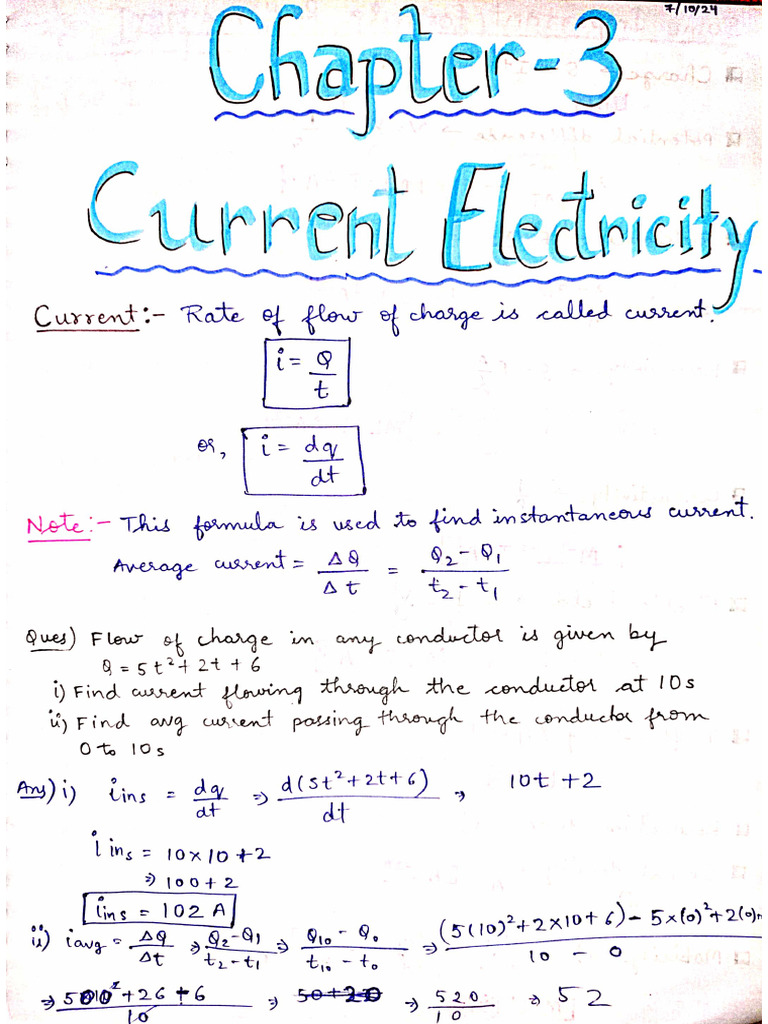 7/10/24
Chapter-3
Current Electricity
Current:- Rate of flow of charge is called current.
i = Q/t
or, i = dq/dt
Note:- This formula is used to find instantaneous current.
Average current = ΔQ/Δt = Q₂-Q₁/t₂-t₁
Ques) Flow of charge in any conductor is given by
Q = 5t²+2t+6
i) Find current flowing through the conductor at 10s
ii) Find avg current passing through the conductor from
0 to 10s
Ans) i) iins = dq/dt ⇒ d(5t²+2t+6)/dt ⇒ 10t+2
iins = 10×10+2
⇒ 100+2
iins = 102 A
ii) iavg = ΔQ/Δt ⇒ Q₂-Q₁/t₂-t₁ ⇒ Q₁₀-Q₀/t₁₀-t₀ ⇒ (5(10)²+2×10+6)-5×(0)²+2(0)+/10-0
⇒ 520/10 ⇒ 52